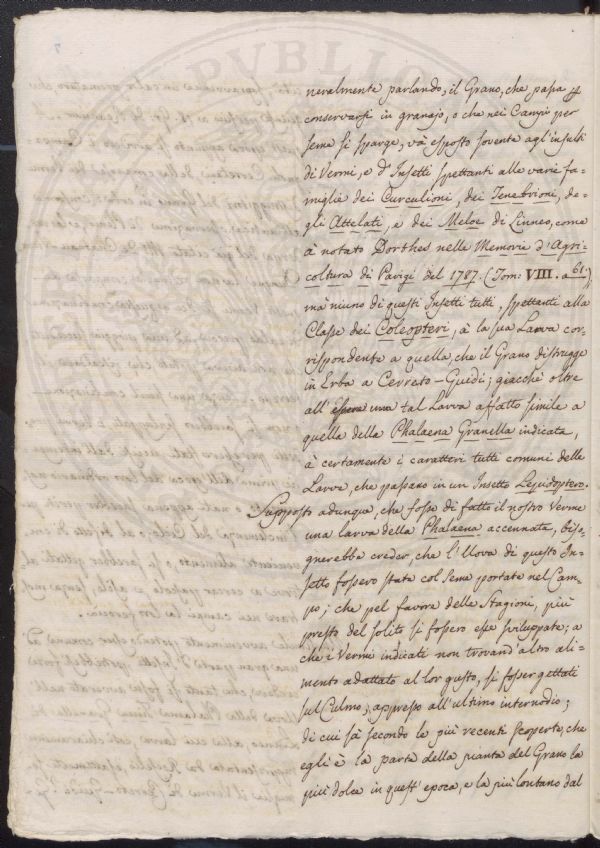 neralmente parlando, il Grano, che passa p
conservarsi in granajo, o che nei Campi per
seme si sparge, và esposto sovente agl'insulti
di Vermi, e d'Insetti spettanti alle varie fa-
miglie dei Curculioni, dei Tenebrioni, de-
gli Attelati, e dei Meloe di Linneo, come
à notato Dorthes nelle Memorie d'Agri-
coltura di Parigi del 1787. (Tom: VIII. a 61.)
mà niuno di questi Insetti tutti, spettanti alla
Classe dei Coleopteri, à la sua Larva cor-
rispondente a quella, che il Grano distrugge
in Erba a Cerreto-Guidi; giacchè oltre
all'essere una tal Larva affatto simile a
quella della Phalaena Granella indicata,
à certamente i caratteri tutti comuni delle
Larve, che passano in un Insetto Lepidoptero.
Supposto adunque, che fosse di fatto il nostro Verme
una larva della Phalaena accennata, biso-
gnerebbe creder, che l'Uova di questo In-
setto fossero state col seme portate nel Cam-
po; che pel favore delle Stagioni, più
presto del solito si fossero esse sviluppate; a
che i Vermi indicati non trovand'altro ali-
mento adattato al lor gusto, si fosser gettati
sul Culmo, appresso all'ultimo internodio;
di cui si sà secondo le più recenti scoperte, che
egli è la parte della pianta del Grano la
più dolce in quest'epoca, e la più lontano dal